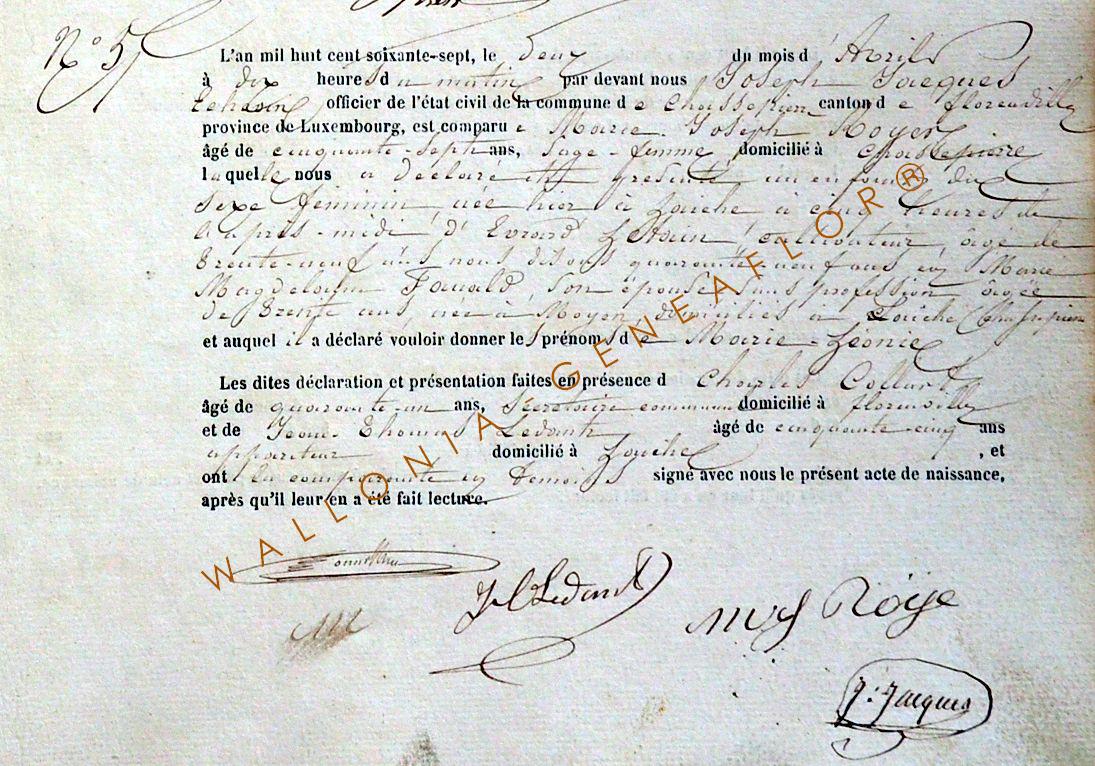 N° 5
L'an mil huit cent soixante-sept, le Deux du mois d' Avril
à dix heures du matin par devant nous Joseph Jacques
Echevin officier de l'état civil de la commune de Chassepierre canton de Florenville
province de Luxembourg, est comparue Marie Joseph Royer
âgé de cinquante-sept ans, sage-femme domicilié à Chassepierre
laquelle nous a déclaré et présenté un enfant du
sexe féminin née hier à Laiche à cinq heures de
l'après-midi d' Evrard cultivateur, âgé de
trente-neuf ans nous disons quarante-neuf ans et Marie
Magdelaine son épouse sans profession âgée
de trente ans, née à Moyen, domiciliés à Laiche Chassepierre
et auquel il a déclaré vouloir donner les prénoms de Marie-Léonie
Les dites déclaration et présentation faites en présence de Charles Collard
âgé de quarante-un ans, Secrétaire communal domicilié à florenville
et de Jean-Thomas Ledant âgé de cinquante-cinq ans
appariteur domicilié à Laiche, et
ont la comparante et témoins signé avec nous le présent acte de naissance,
après qu'il leur en a été fait lecture.
WALLONIA GENEAFLOR®
Ledant
Roye
J: Jacques